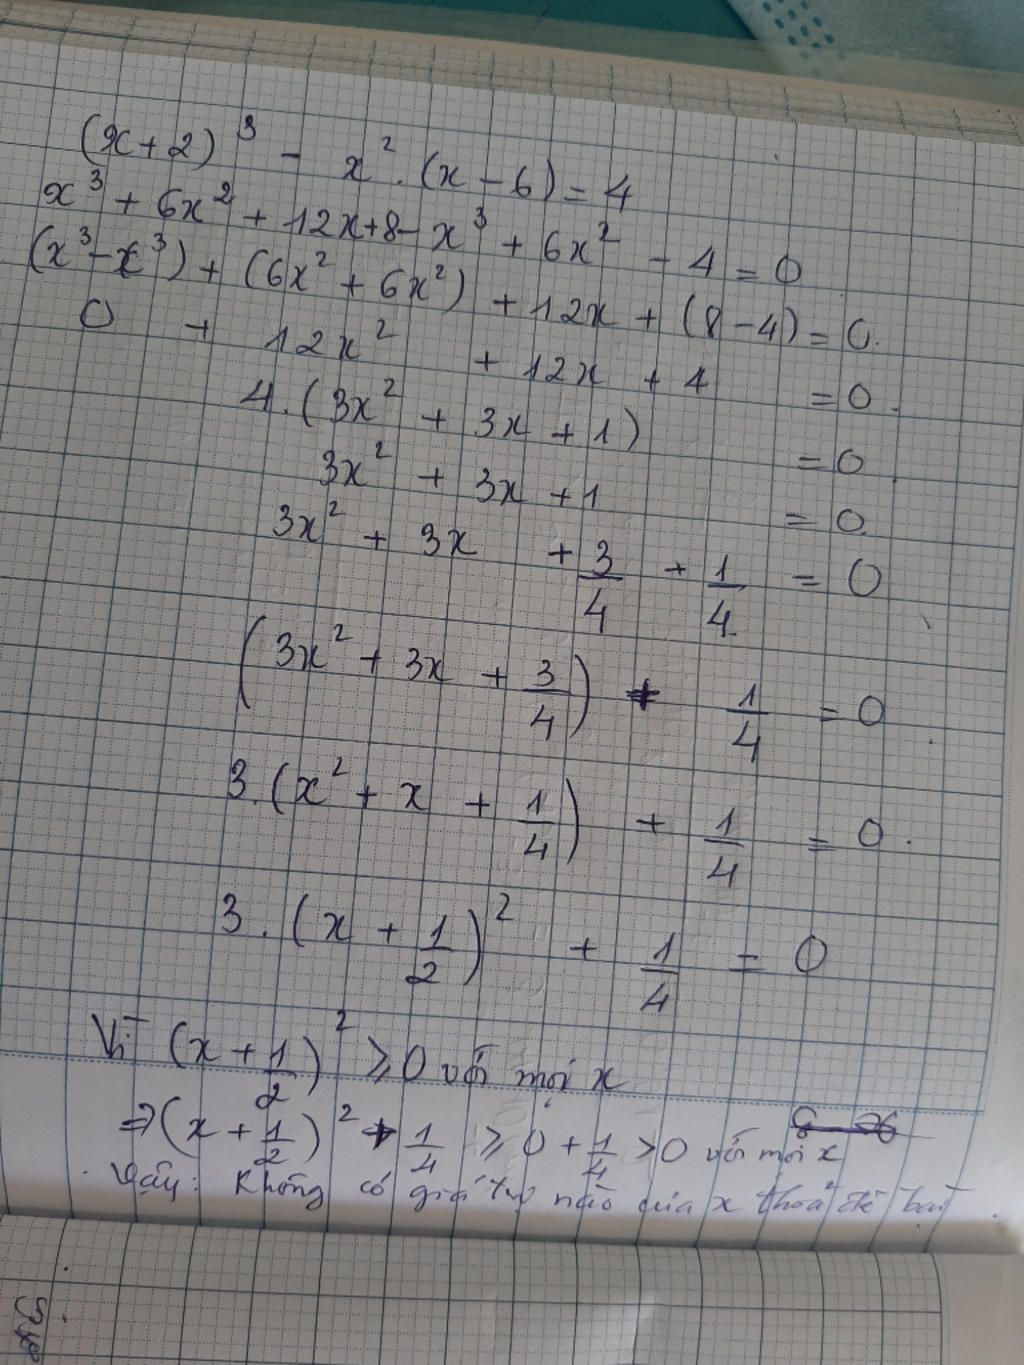 (x+2)³ - x².(x-6)=4
x³ + 6x² + 12x+8- x³ + 6x² - 4 = 0
(x³-x³) + (6x² + 6x²) + 12x + (8-4) = 0.
0 + 12x² + 12x + 4 = 0.
4.(3x² + 3x + 1) = 0
3x² + 3x + 1 = 0
3x² + 3x + 3/4 + 1/4 = 0
(3x² + 3x + 3/4) + 1/4 = 0
3.(x² + x + 1/4) + 1/4 = 0.
3.(x + 1/2)² + 1/4 = 0
Vì (x + 1/2)² ≥ 0 với mọi x
⇒(x + 1/2)² + 1/4 ≥ 0 + 1/4 > 0 với mọi x
Vậy: Không có giá trị nào của x thoả đề bài